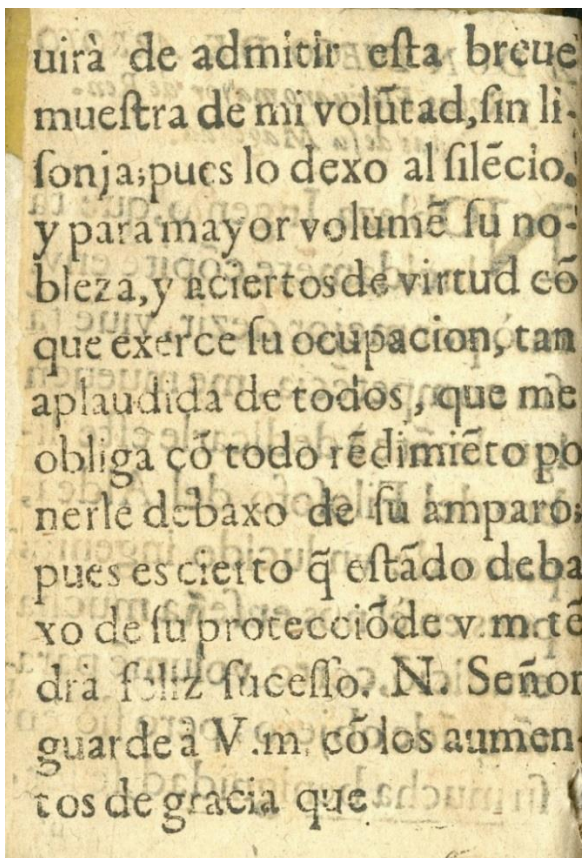 uirà de admitir eſta breue
mueſtra de mi volũtad, ſin li-
ſonja; pues lo dexo al ſilẽcio,
y para mayor volumẽ ſu no-
bleza, y aciertos de virtud cõ
que exerce ſu ocupacion, tan
aplaudida de todos, que me
obliga cõ todo rẽdimiẽto po
nerle debaxo de ſu amparo;
pues es cierto q̃ eſtãdo deba
xo de ſu protecciõ de v.m. tẽ
drà feliz ſuceſſo. N. Señor
guarde à V.m. cõ los aumen-
tos de gracia que